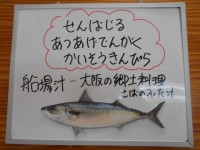 せんばじる
あつあげでんがく
かいそうきんぴら
船場汁…大阪の郷土料理
さばのみそ汁